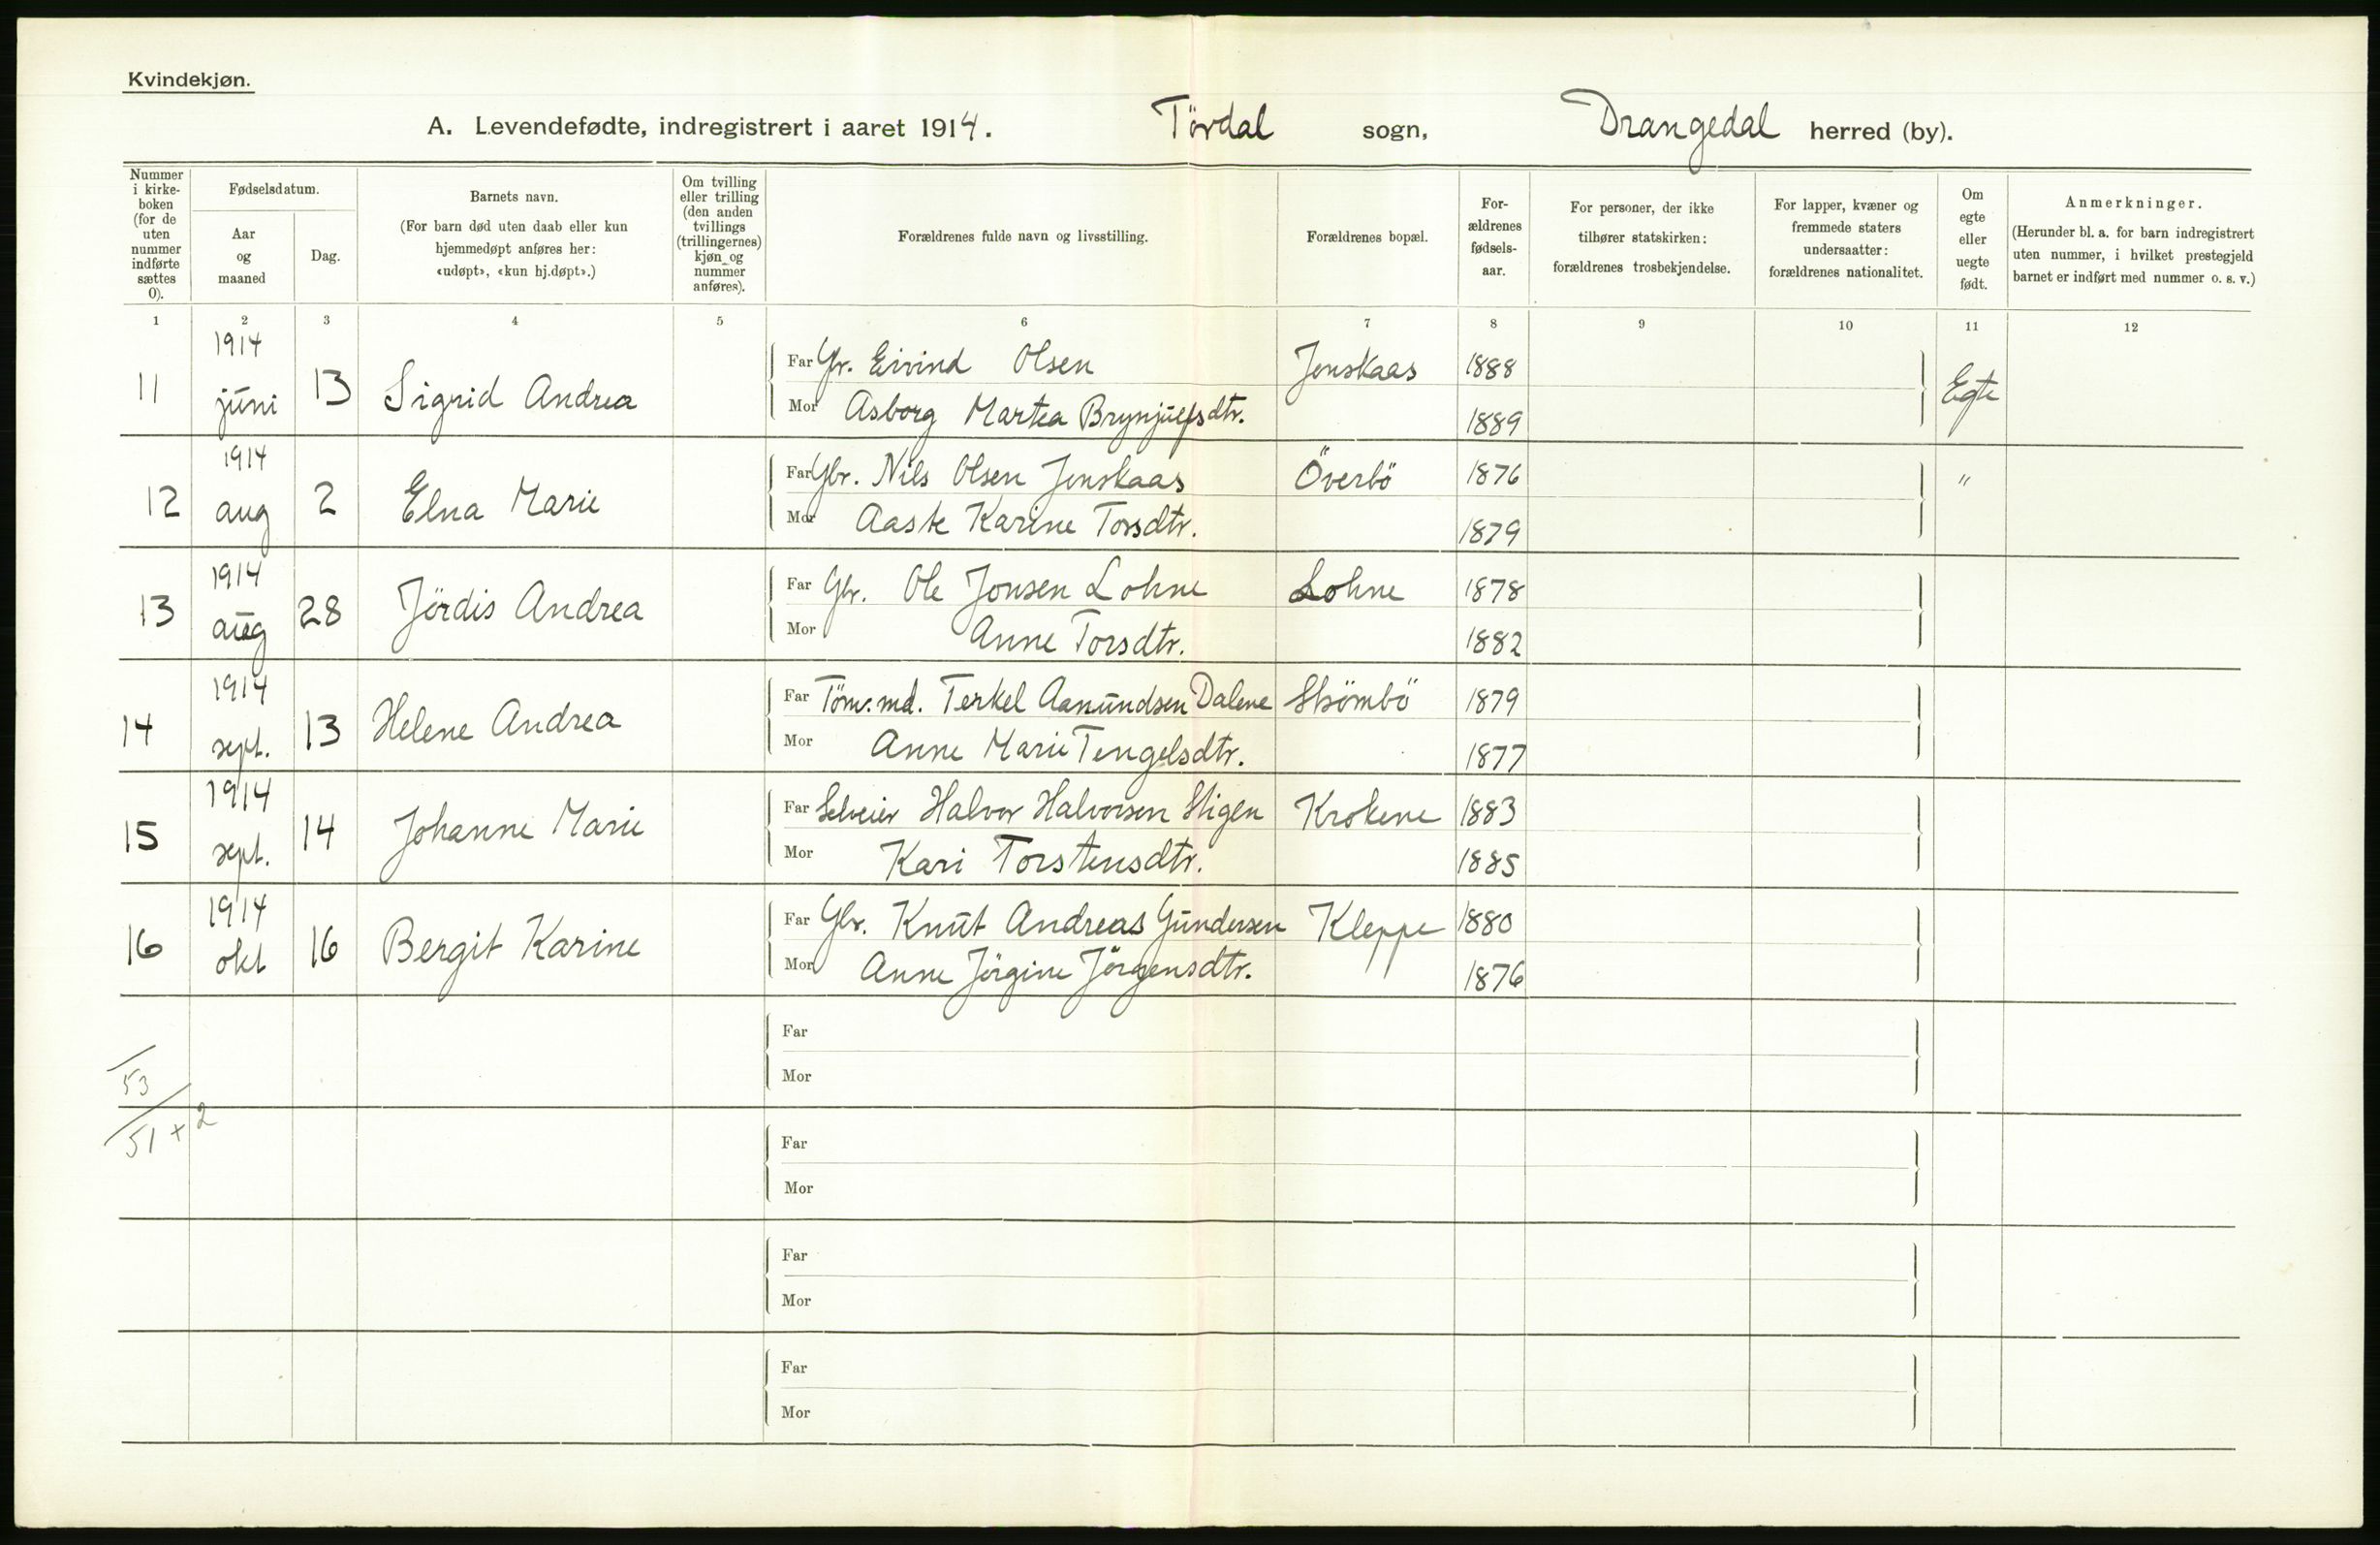 Kvindekjøn.
A. Levendefødte, indregistrert i aaret 1914. Tördal sogn, Drangedal herred (by).
Nummer i kirke-boken (for de uten nummer indførte sættes 0).
Fødselsdatum.
Aar og maaned
Dag.
Barnets navn.
(For barn død uten daab eller kun hjemmedøpt anføres her: «udøpt», «kun hj.døpt».)
Om tvilling eller trilling (den anden tvillings (trillingernes) kjøn og nummer anføres).
Forældrenes fulde navn og livsstilling.
Forældrenes bopæl.
For-ældrenes fødsels-aar.
For personer, der ikke tilhører statskirken: forældrenes trosbekjendelse.
For lapper, kvæner og fremmede staters undersaatter: forældrenes nationalitet.
Om egte eller uegte født.
Anmerkninger.
(Herunder bl. a. for barn indregistrert uten nummer, i hvilket prestegjeld barnet er indført med nummer o. s. v.)
1 2 3 4 5 6 7 8 9 10 11 12
11 1914 juni 13 Sigrid Andrea Far Gr. Eivind Olsen Jonskaas 1888 Egte
Mor Asborg Martea Brynjulfsdtr. 1889
12 1914 aug 2 Elna Marie Far Gbr. Nils Olsen Jonskaas Överbö 1876 "
Mor Aaste Karine Torsdtr. 1879
13 1914 aug 28 Jördis Andrea Far Gbr. Ole Jonsen Lohne Lohne 1878
Mor Anne Torsdtr. 1882
14 1914 sept. 13 Helene Andrea Far Töm.md. Terkel Aamundsen Dalene 1879
Mor Anne Marie Tengelsdtr. 1877
15 1914 sept. 14 Johanne Marie Far Selveier Halvor Halvorsen Stigen Krokene 1883
Mor Kari Torstensdtr. 1885
16 1914 okt 16 Bergit Karine Far Gbr. Knut Andreas Gundersen Kleppe 1880
Mor Anne Jörgine Jörgensdtr. 1876
Far
Mor
53
51 + 2
Far
Mor
Far
Mor
Far
Mor